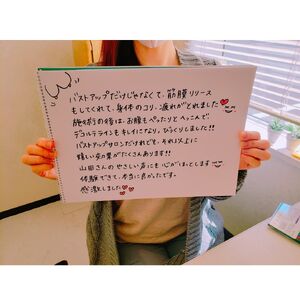 バストアップだけじゃなくて、筋膜リリース
もしてくれて、身体のコリ、疲れがとれました
施術の後は、お腹もぺったりとへっこんで
デコルテラインもキレイになり、びっくりしました!!
バストアップサロンだけれども、それ以上に
嬉しい効果がたくさんあります!!
山田さんのやさしい声にも心がほっとします
体験できて、本当に良かったです。
感激しました